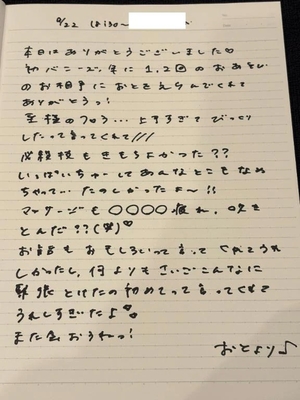 9/22 18:30〜
本日はありがとうございました♡
初バニーズ、年に1,2回のおあそび
のお相手におとをえらんでくれて
ありがとうっ!
至極のフロう… 上手すぎてびっくり
したって言ってくれて///
必殺技もきもちよかった??
いっぱいちゅーしてあんなとこもなめ
ちゃってい たのしかったよ〜!!
マッサージも〇〇〇〇疲れ、吹き
とんだ??(笑)♡
お話もおもしろいって言ってくれてうれ
しかったし、何よりもさいごこんなに
緊張とけたの初めてって言ってくれて
うれしすぎたよ♡
また会おうねっ!
おとより♪